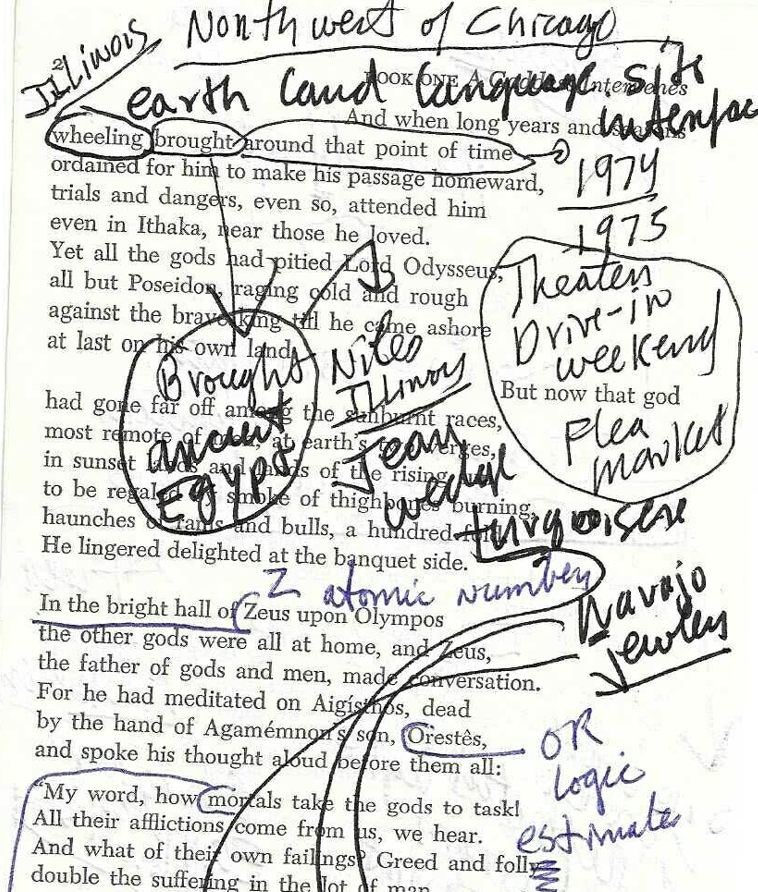 Northwest of Chicago
Illinois
2
BOOK ONE A Goddess Intervenes
earth land language site
interface
And when long years and seasons
wheeling brought around that point of time
ordained for him to make his passage homeward,
trials and dangers, even so, attended him
even in Ithaka, near those he loved.
Yet all the gods had pitied Lord Odysseus,
all but Poseidon, raging cold and rough
against the brave king till he came ashore
at last on his own land.
1974
1975
Theater
Drive-in
weekend
Flea
market
But now that god
Brought
ancient
Egypt
Niles
Illinois
Jean
wedel
turquoise
had gone far off among the sunburnt races,
most remote of men, at earth's two verges,
in sunset lands and lands of the rising sun,
to be regaled by smoke of thighbones burning,
haunches of rams and bulls, a hundred fold.
He lingered delighted at the banquet side.
Z atomic number
Navajo
Jewlery
In the bright hall of Zeus upon Olympos
the other gods were all at home, and Zeus,
the father of gods and men, made conversation.
For he had meditated on Aigísthos, dead
by the hand of Agamémnon's son, Orestês,
and spoke his thought aloud before them all:
OR
logic
estimates
"My word, how mortals take the gods to task!
All their afflictions come from us, we hear.
And what of their own failings? Greed and folly
double the suffering in the lot of man.